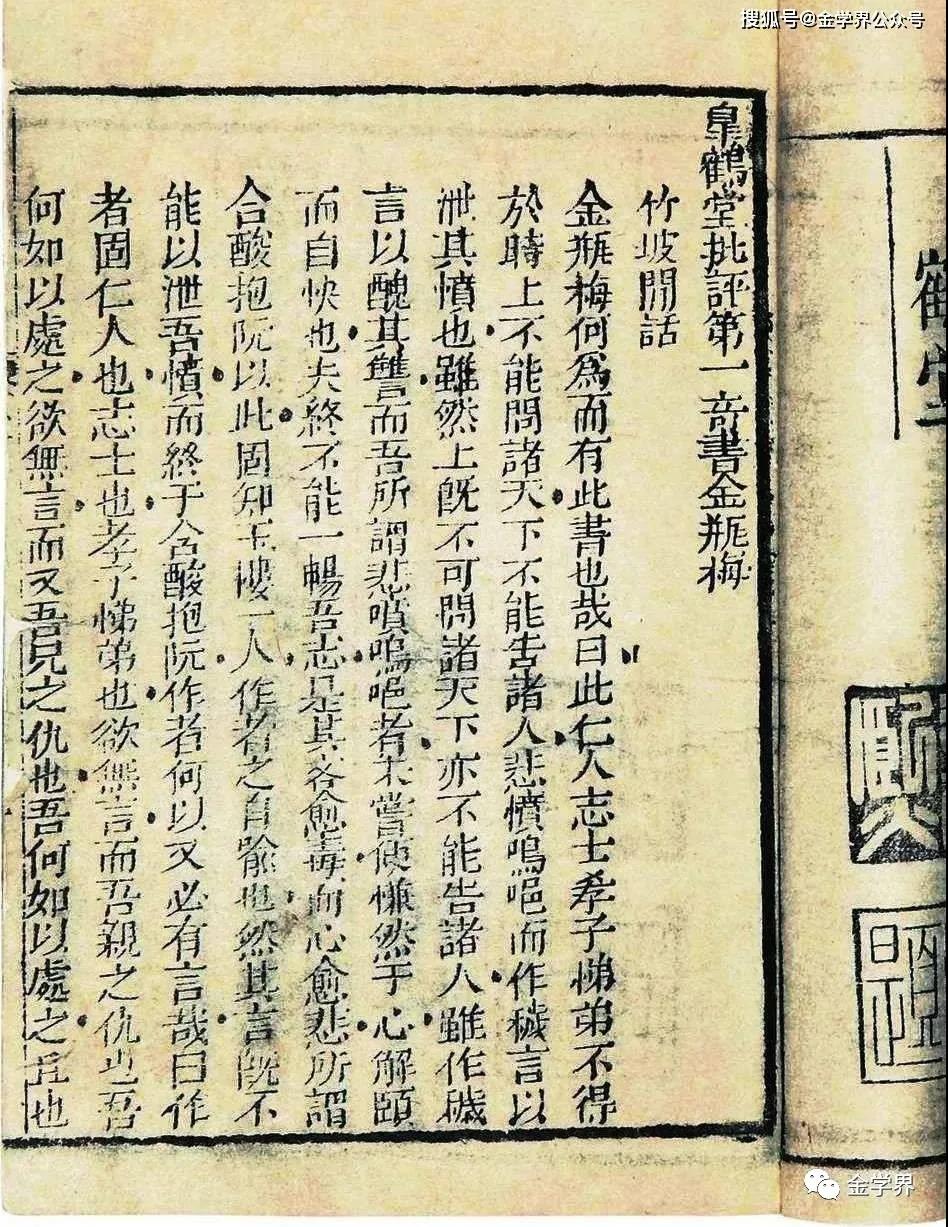 搜狐号@金学界公众号
皐鶴堂批評第一竒書金瓶梅
竹坡閒話
金瓶梅何爲而有此書也哉曰此仁人志士孝子悌弟不得
於時上不能問諸天下不能告諸人悲憤嗚唈而作穢言以
泄其憤也雖然上旣不可問諸天下亦不能告諸人雖作穢
言以醜其讐而吾所謂悲憤嗚唈者未嘗便慊然于心解頤
而自快也夫終不能一暢吾志是其言愈毒而心愈悲所謂
含酸抱阮以此固知玉樓一人作者之自喻也然其言旣不
能以泄吾憤而終于含酸抱阮作者何以又必有言哉曰作
者固仁人也志士也孝子悌弟也欲無言而吾親之仇也吾
何如以處之欲無言而又吾兄之仇也吾何如以處之且也
鶴堂
金学界